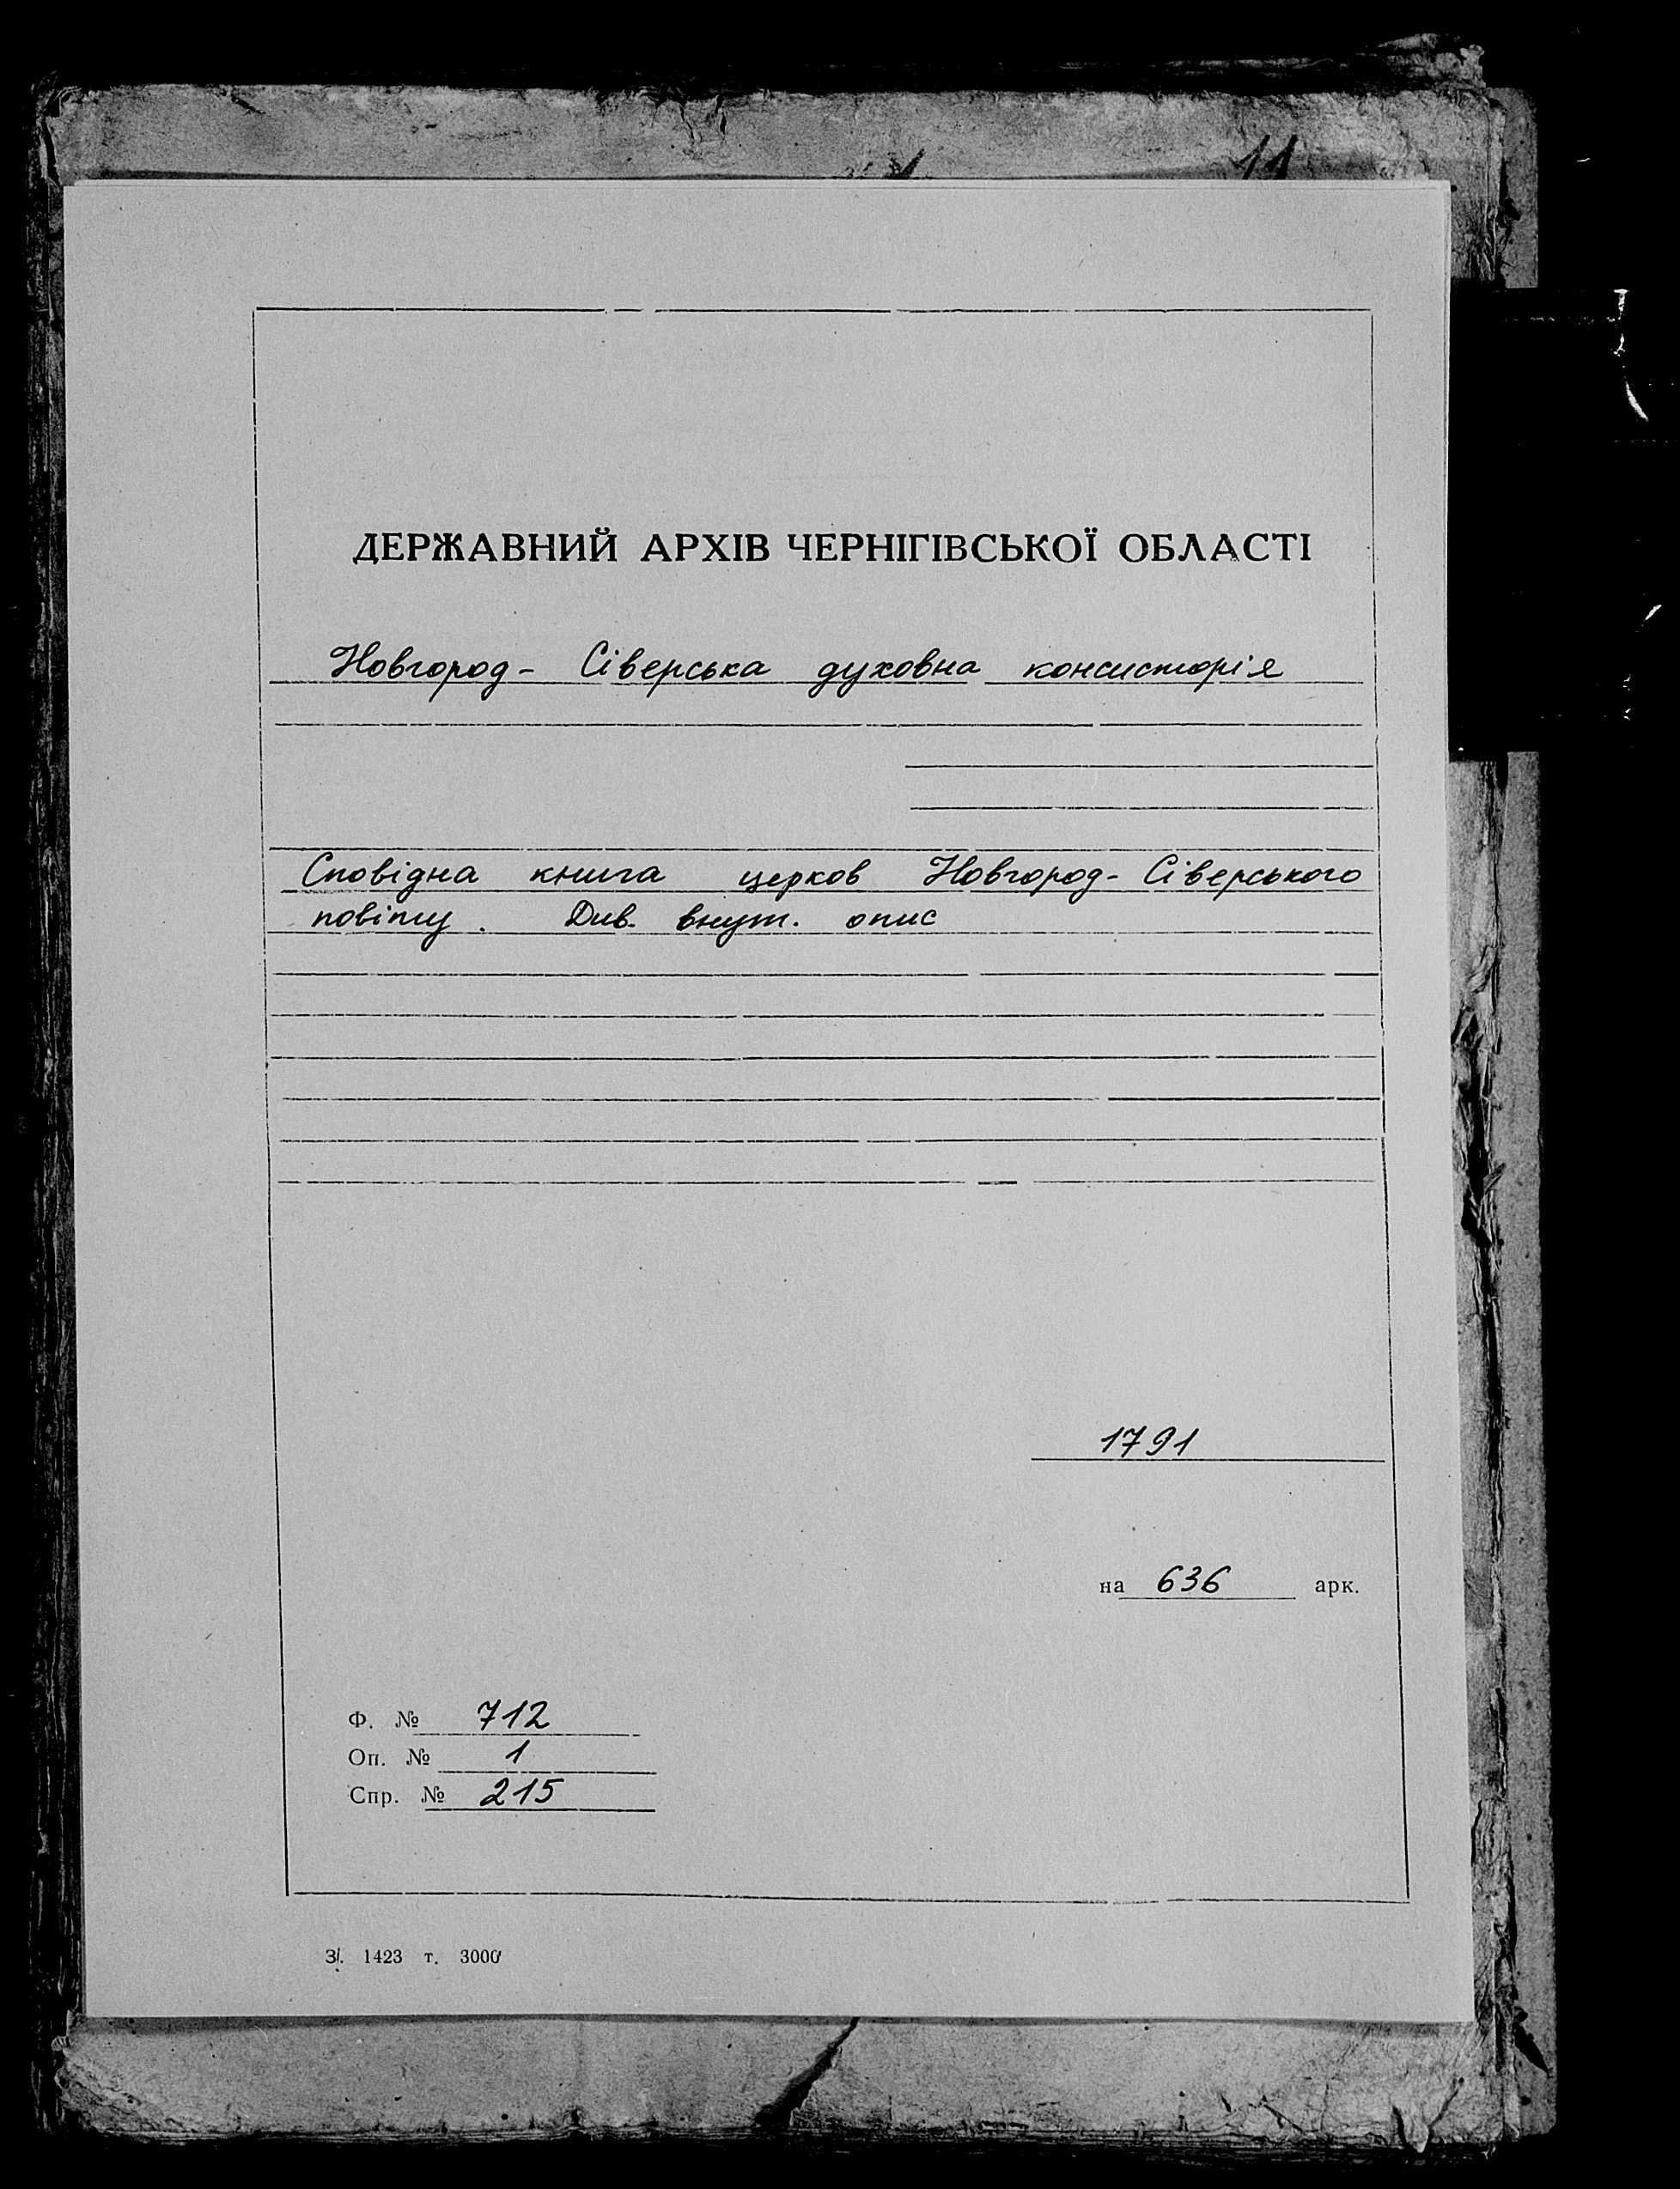 11
ДЕРЖАВНИЙ АРХІВ ЧЕРНІГІВСЬКОЇ ОБЛАСТІ
Новгород- Сіверська духовна консисторія
Сповідна книга церков Новгород- Сіверського
повіту. Див. внут. опис
1791
на 636 арк.
Ф. № 712
Оп. № 1
Спр. № 215
З. 1423 т. 3000